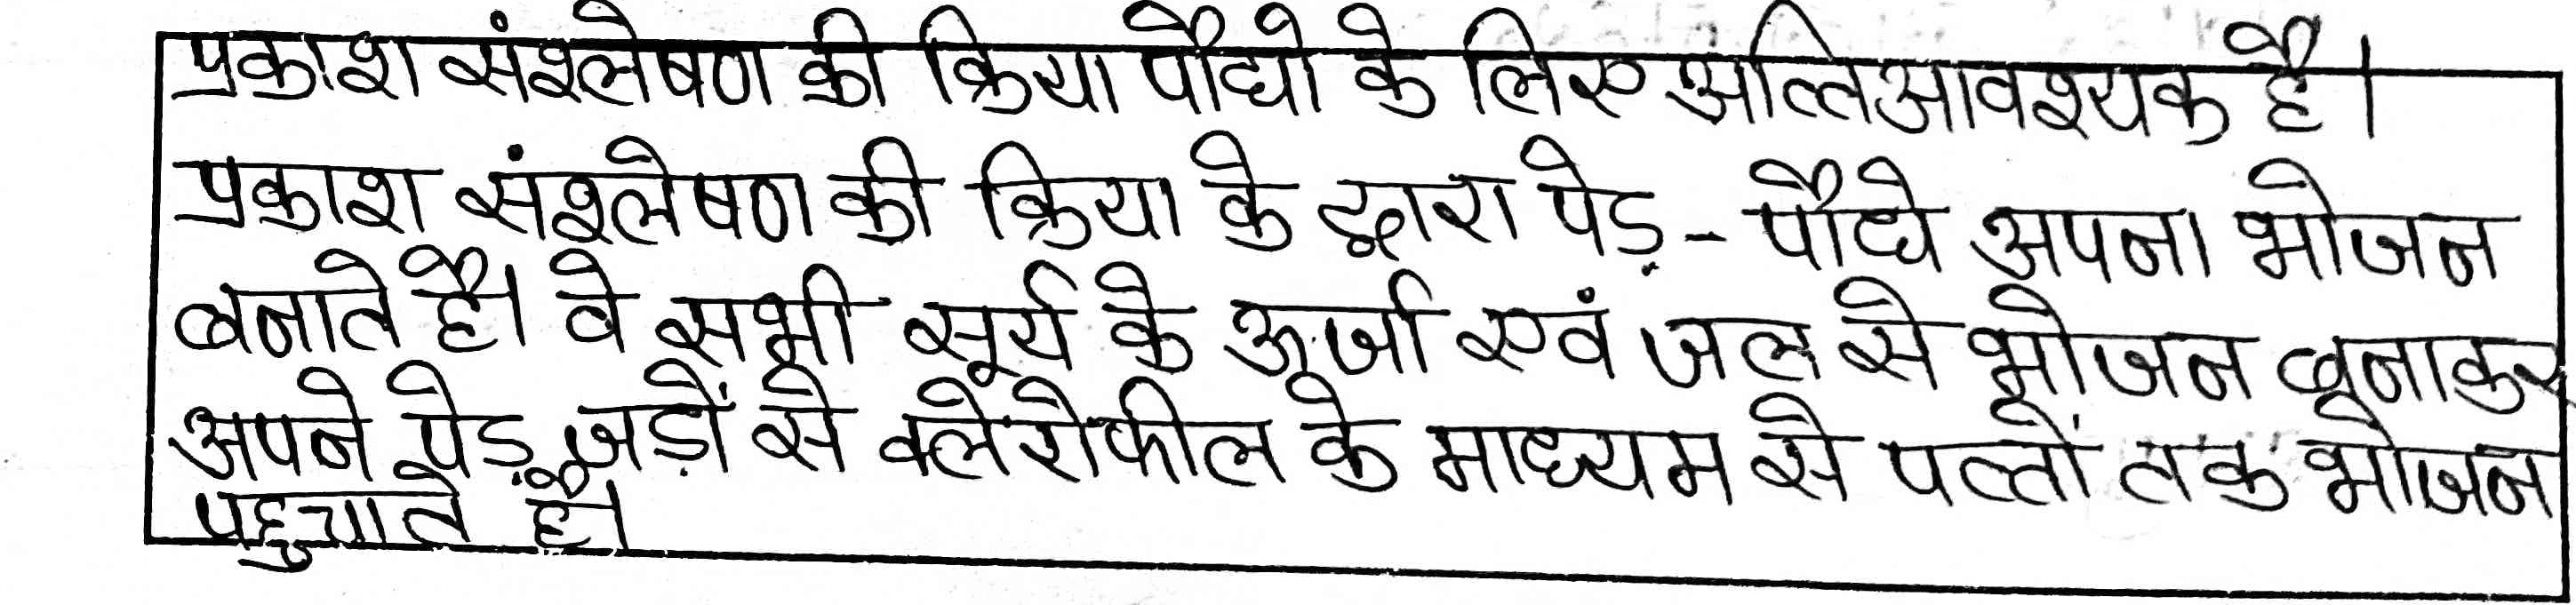 प्रकाश संश्लेषण की क्रिया पौधो के लिए अतिआवश्यक है।
प्रकाश संश्लेषण की क्रिया के द्वारा पेड़ - पौधे अपना भोजन
बनाते है। वे सभी सूर्य के ऊर्जा एवं जल से भोजन बनाकर
अपने पेड़ जड़ों से क्लेरोफील के माध्यम से पत्तों तक भोजन
पहुचाते है।